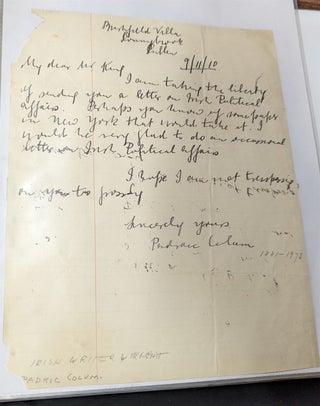 Dublin
9/11/10
My dear Mr King
I am taking the liberty
of sending you a letter on Irish Political
affairs. Perhaps you know of some paper
in New York that would take it. I
would be very glad to do an occasional
letter on Irish Political affairs
I hope I am not trespassing
on you too
Sincerely yours
Padraic Colum
1881-1972
IRISH WRITER
PADRIC COLUM.